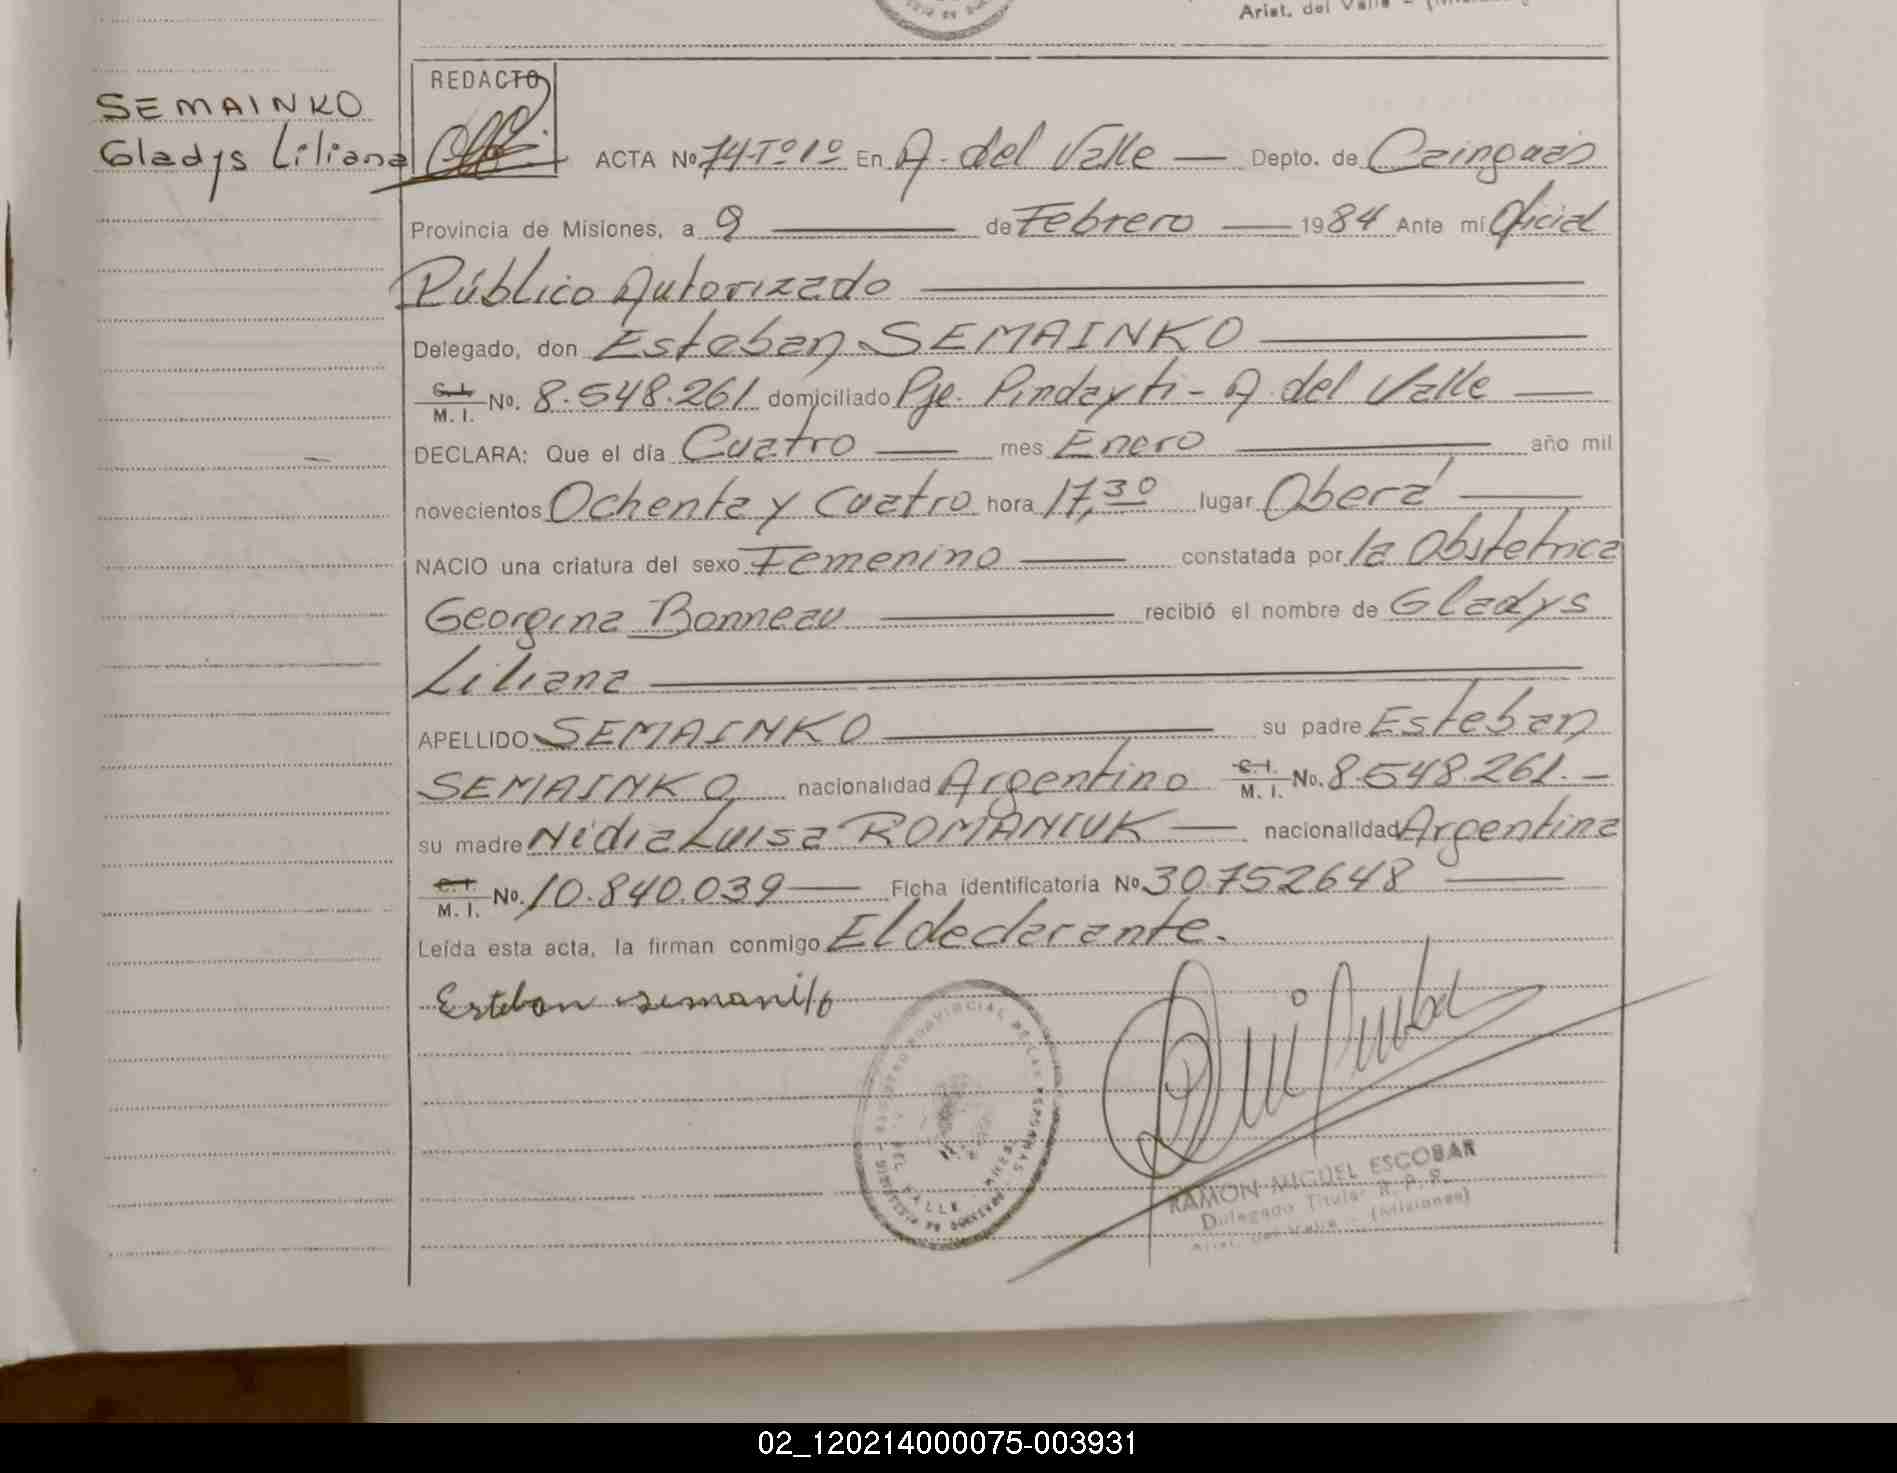 Arist. del Valle - (Misiones)
REDACTO
SEMAINKO
Gladys Liliana
ACTA No 74-Tº1º En A. del Valle — Depto. de Cainguas
Provincia de Misiones, a 9 — de Febrero — 1984 Ante mi Oficial
Público Autorizado
Delegado, don Esteban SEMAINKO
C.I. M. I. No. 8.548.261 domiciliado Pje. Pindayti - A. del Valle —
DECLARA: Que el día Cuatro — mes Enero — año mil
novecientos Ochenta y Cuatro hora 17,30 lugar Oberá —
NACIO una criatura del sexo Femenino — constatada por la Obstetrica
Georgina Bonneau — recibió el nombre de Gladys
Liliana
APELLIDO SEMAINKO — su padre Esteban
SEMAINKO nacionalidad Argentino C.I. M. I. No. 8.548.261.-
su madre Nidia Luisa ROMANIUK — nacionalidad Argentina
C.I. M. I. No. 10.840.039 — Ficha identificatoria No 30.752648 —
Leída esta acta, la firman conmigo El declarante.
Esteban
REGISTRO PROVINCIAL DE LAS PERSONAS
DEL VALLE
RAMON MIGUEL ESCOBAR
Delegado Titular R. P. P.
Arist. del Valle - (Misiones)
02_120214000075-003931